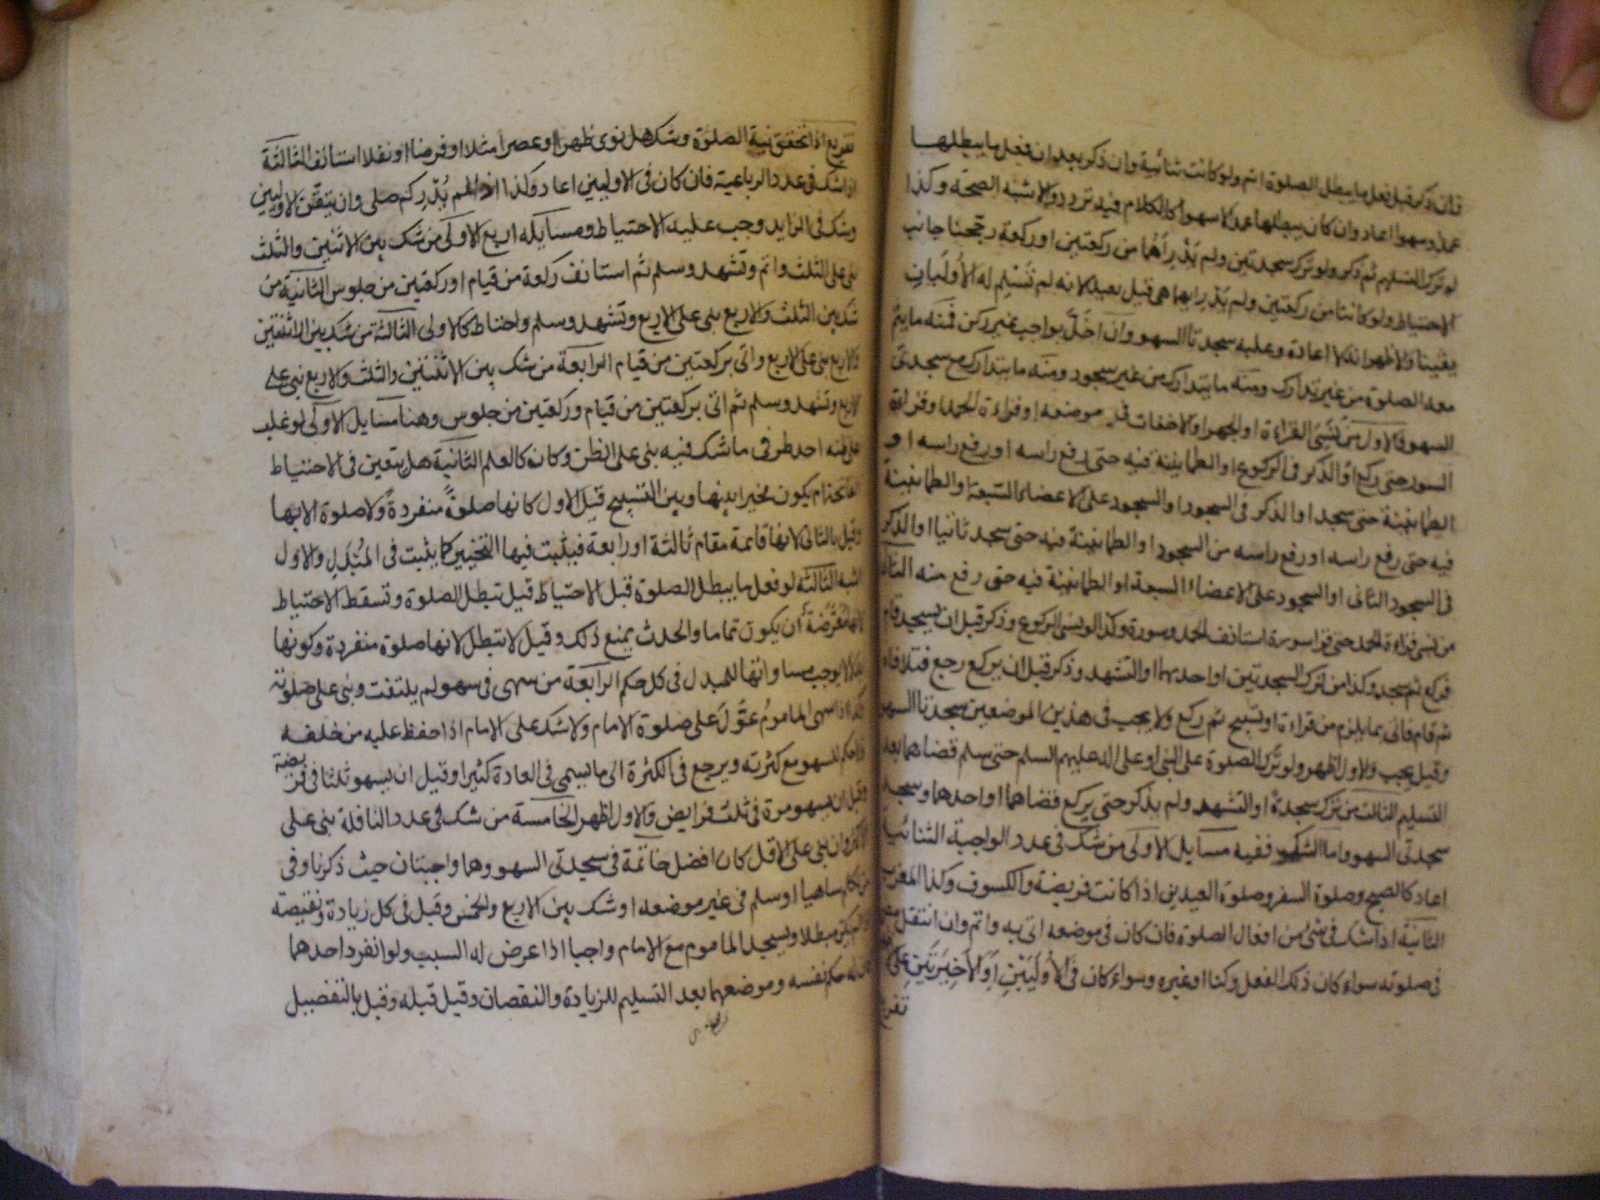 فان ذكر قبل فعل ما يبطل الصلوة اتم ولو كانت ثنائية وان ذكر بعد ان فعل ما يبطلها
عمدا وسهوا اعاد وان كان يبطلها عمدا لا سهوا كالكلام فيه تردد والاشبه الصحة وكذا
لو ترك التسليم ثم ذكر ولو ترك سجدتين ولم يدر أهما من ركعتين او ركعة رجحنا جانب
الاحتياط ولو كانتا من ركعتين ولم يدر ايهما هي قيل يعيد لانه لم تسلم له الأوليان
يقينا والاظهر انه لا اعادة وعليه سجدتا السهو وان اخل بواجب غير ركن فمنه ما يتم
معه الصلوة من غير تدارك ومنه ما يتدارك من غير سجود ومنه ما يتدارك مع سجدتى
السهو فالاول من نسى القراءة او الجهر او الاخفات في موضعه او قراءة الحمد او قراءة
السورة حتى ركع او الذكر فى الركوع او الطمانينة فيه حتى رفع راسه او رفع راسه او
الطمانينة حتى سجد او الذكر فى السجود او السجود على الاعضاء السبعة او الطمانينة
فيه حتى رفع راسه او رفع راسه من السجود او الطمانينة فيه حتى سجد ثانيا او الذكر
فى السجود الثانى او السجود على الاعضاء السبعة او الطمانينة فيه حتى رفع منه الثانى
من نسى قراءة الحمد حتى قرا سورة استانف الحمد وسورة وكذا لو نسى الركوع وذكر قبل ان يسجد قام
فركع ثم سجد وكذا من ترك السجدتين او احديهما او التشهد وذكر قبل ان يركع رجع فتلافاه
ثم قام فاتى بما يلزم من قراءة او تسبيح ثم ركع ولا يجب فى هذين الموضعين سجدتا السهو
وقيل يجب والاول اظهر ولو ترك الصلوة على النبى او على اله عليهم السلم حتى سلم قضاهما بعد
التسليم الثالث من ترك سجدة او التشهد ولم يذكر حتى يركع قضاهما او احدهما وسجد
سجدتى السهو واما الشك ففيه مسايل الاولى من شك فى عدد الواجبة الثنائية
اعاد كالصبح وصلوة السفر وصلوة العيدين اذا كانت فريضة والكسوف وكذا المغرب
الثانية اذا شك فى شئ من افعال الصلوة فان كان فى موضعه اتى به واتم وان انتقل مضى
فى صلوته سواء كان ذلك الفعل ركنا او غيره وسواء كان فى الأوليين او الاخيرتين على
تفريع
تفريع اذا تحقق نية الصلوة وشك هل نوى ظهرا او عصرا مثلا او فرضا او نفلا استانف الثالثة
اذا شك فى عدد الرباعية فان كان فى الاوليين اعاد وكذا اذا لم يدر كم صلى وان تيقن الاوليين
وشك فى الزايد وجب عليه الاحتياط ومسايله اربع الاولى من شك بين الاثنين والثلث
بنى على الثلث واتم وتشهد وسلم ثم استانف ركعة من قيام او ركعتين من جلوس الثانية من
شك بين الثلث والاربع بنى على الاربع وتشهد وسلم واحتاط كالاولى الثالثة من شك بين الاثنتين
والاربع بنى على الاربع واتى بركعتين من قيام الرابعة من شك بين الاثنتين والثلث والاربع بنى على
الاربع وتشهد وسلم ثم اتى بركعتين من قيام وركعتين من جلوس وهنا مسايل الاولى لو غلب
على ظنه احد طرفى ما شك فيه بنى على الظن وكان كالعلم الثانية هل يتعين فى الاحتياط
الفاتحة ام يكون مخيرا بينها وبين التسبيح قيل الاول كانها صلوة منفردة ولا صلوة الا بها
وقيل بالثانى لانها قائمة مقام ثالثة او رابعة فيثبت فيها التخيير كما يثبت فى المبدل والاول
اشبه الثالثة لو فعل ما يبطل الصلوة قبل الاحتياط قيل تبطل الصلوة وتسقط الاحتياط
لانها معرضة أن يكون تماما والحدث يمنع ذلك وقيل لا تبطل لانها صلوة منفردة وكونها
بدلا لا يوجب مساواتها للمبدل فى كل حكم الرابعة من سهى فى سهو لم يلتفت وبنى على صلوته
وكذا اذا سهى الماموم عوّل على صلوة الامام ولا شك على الامام اذا حفظ عليه من خلفه
ولا حكم للسهو مع كثرته ويرجع فى الكثرة الى ما يسمى فى العادة كثيرا وقيل ان يسهو ثلثا فى فريضة
وقيل ان يسهو مرة فى ثلث فرايض والاول اظهر الخامسة من شك فى عدد النافلة بنى على
الاكثر وان بنى على الاقل كان افضل خاتمة فى سجدتى السهو وهما واجبتان حيث ذكرنا وفى
من تكلم ساهيا او سلم فى غير موضعه او شك بين الاربع والخمس وقيل فى كل زيادة ونقيصة
اذا لم يكن مبطلا ويسجد الماموم مع الامام واجبا اذا عرض له السبب ولو انفرد احدهما
كان له حكم نفسه وموضعهما بعد التسليم للزيادة والنقصان وقيل قبله وقيل بالتفصيل